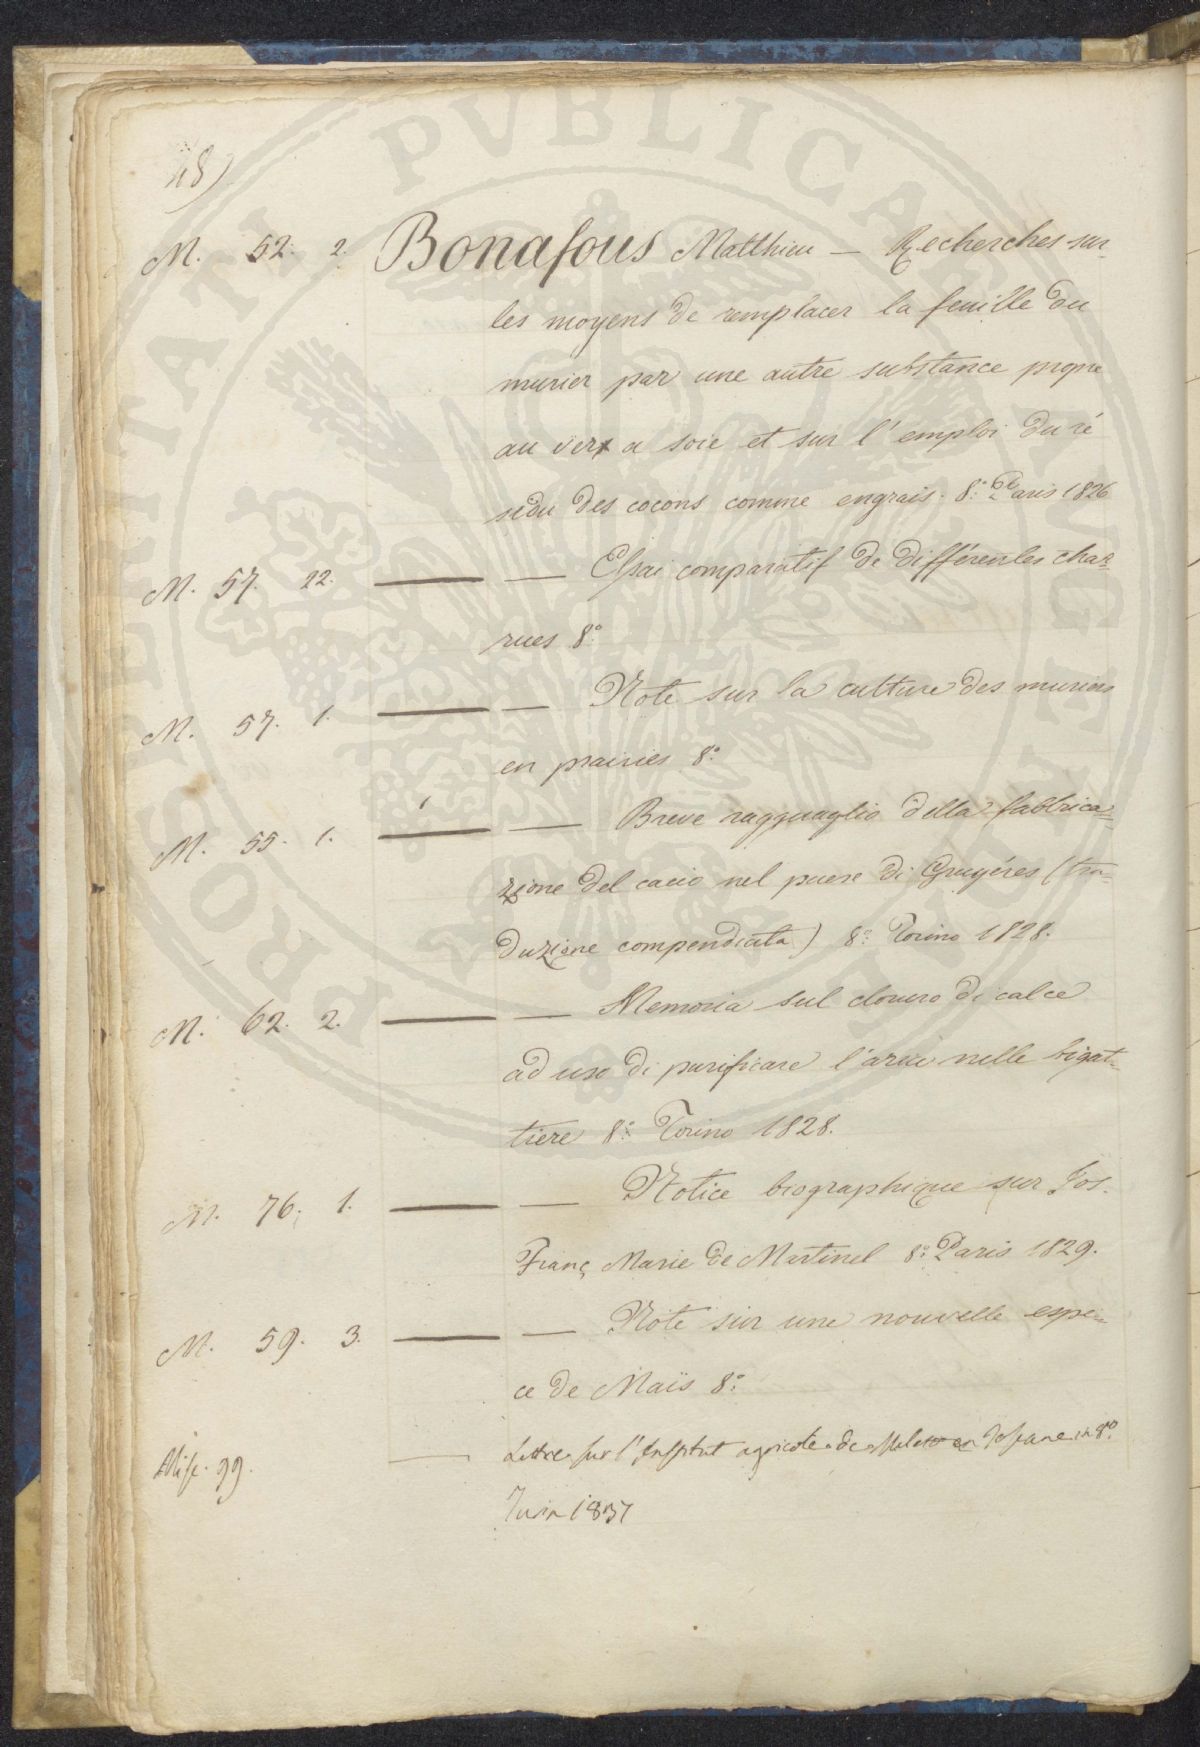 18)
M. 52. 2. Bonafous Matthieu — Recherches sur
les moyens de remplacer la feuille du
murier par une autre substance propre
au ver a soie et sur l'emploi du ré
sidu des cocons comme engrais. 8.º Paris 1826
M. 57. 22. — — Essai comparatif de différentes char=
rues 8.º
M. 57. 1. — — Note sur la culture des muriers
en prairies 8.º
M. 55. 1. — — Breve ragguaglio della fabbrica=
zione del cacio nel paese di Gruyéres (tra=
duzione compendiata) 8.º Torino 1828.
M. 62. 2. — — Memoria sul cloruro di calce
ad uso di purificare l'aria nelle bigat=
tiere 8.º Torino 1828.
M. 76. 1. — — Notice biographique sur Jos.
Franç Marie de Martinel 8.º Paris 1829.
M. 59. 3. — — Note sur une nouvelle espe=
ce de Maïs 8.º
Misc. 99. — Lettre sur l'Institut agricole de Meleto en Toscane in 8º
Turin 1837
PROSPERITATI PVBLICAE AVGENDAE